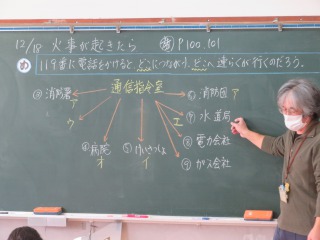 12/18 火事が起きたら P100.101
め 119番に電話をかけると、どこにつながり、どこへ連らくが行くのだろう。
通信指令室
消防署 ア
消防団 ア
ウ
エ 水道局
病院 オ
けいさつしょ イ
⑧ 電力会社
⑨ ガス会社